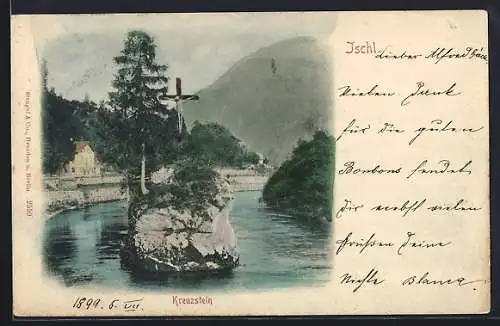 Ischl
Lieber Alfred
Vielen Dank
für die guten
Bonbons sendet
Dir nebst vielen
Grüßen Deine
Nichte Blanca
1899 6. VII.
Kreuzstein
Stengel & Co., Dresden u. Berlin